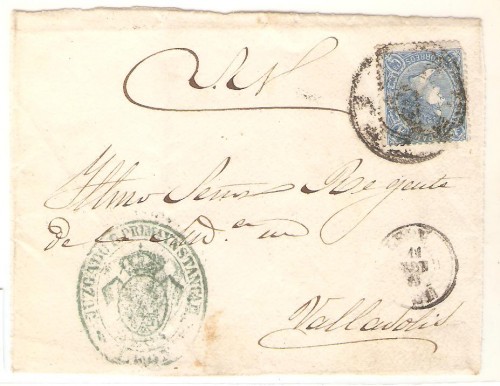 S. N.
Yltmo Señor Regente
de la Aud.en en
Valladolid
JUZGADO DE PRIMERA INSTANCIA